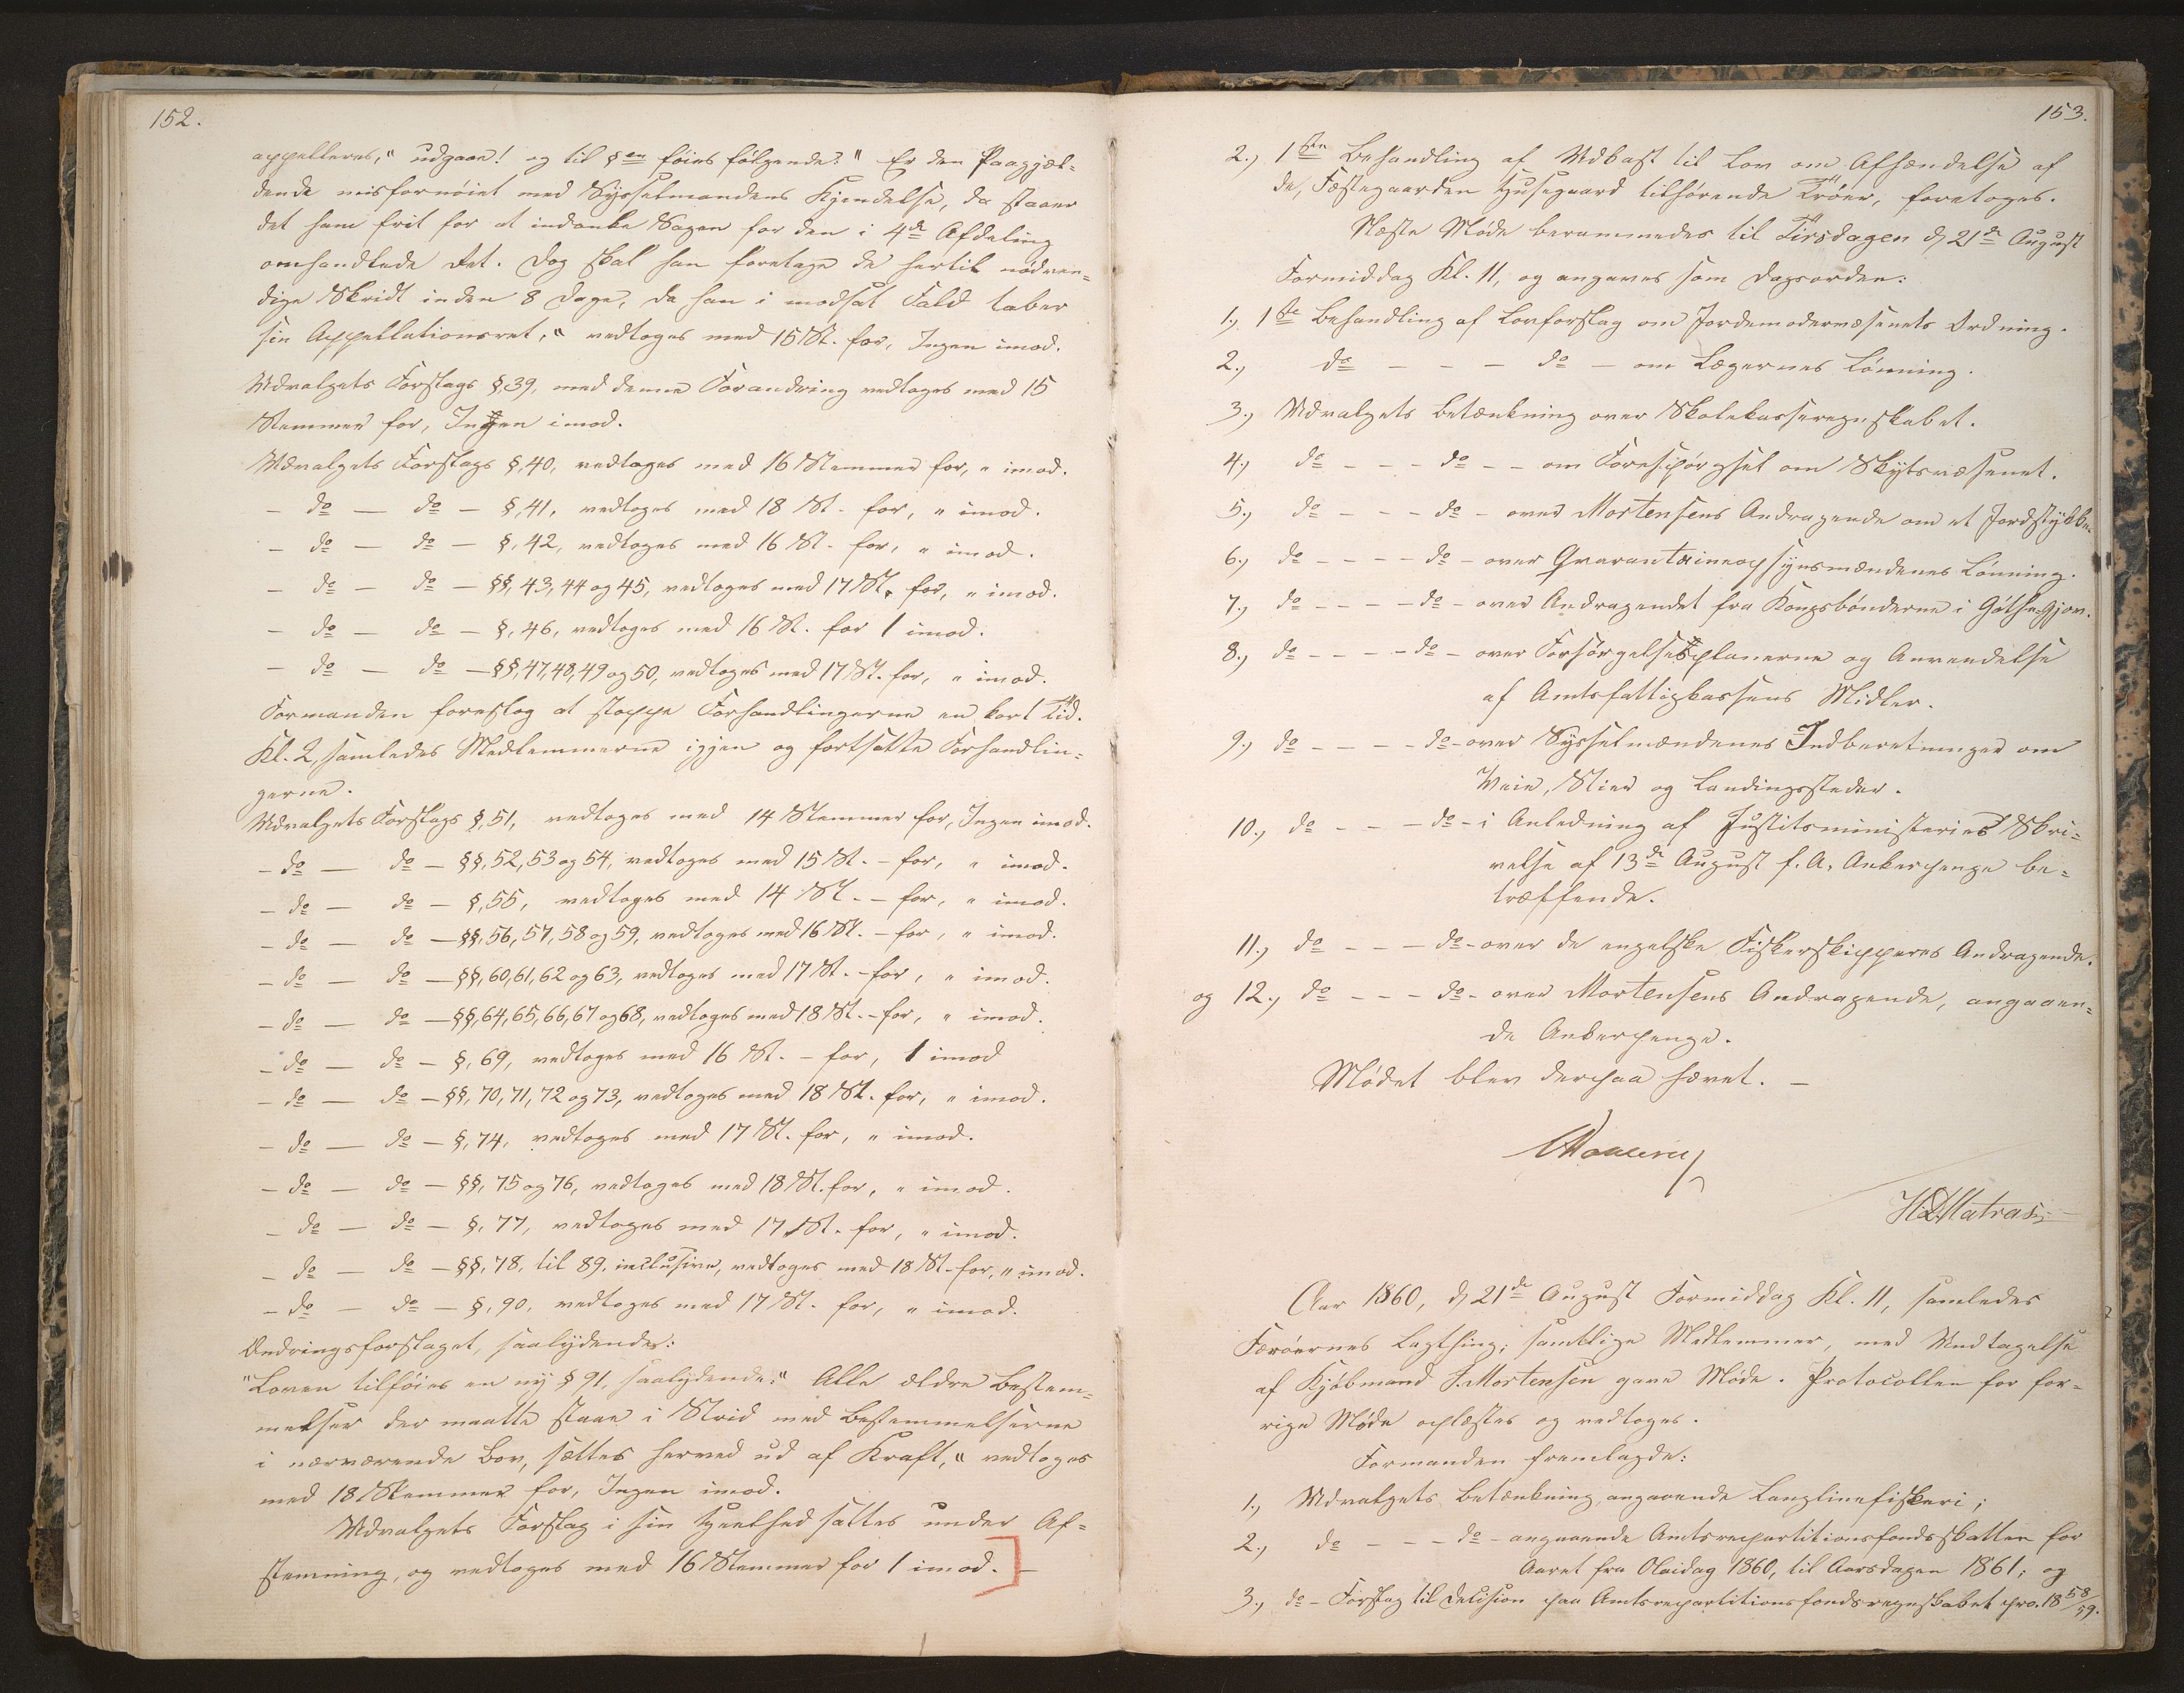 152.
appelleres," udgaae! og til §en føies følgende: " Er den Paagjæl-
dende misfornøiet med Sysselmandens Kjendelse, da staaer
det ham frit for at indanke Sagen for den i 4de Afdeling
omhandlede Ret. Dog skal han foretage de hertil nødven-
dige Skridt inden 8 Dage, da han i modsat Fald taber
sin Appellationsret," vedtoges med 15 St. for, Ingen imod.
Udvalgets Forslags §, 39, med denne Forandring vedtoges med 15
Stemmer for, Ingen imod.
Udvalgets Forslags §, 40, vedtoges med 16 Stemmer for, " imod.
- do - do - §, 41, vedtoges med 18 St. for, " imod.
- do - do - §, 42, vedtoges med 16 St. for, " imod.
- do - do - §§, 43, 44 og 45, vedtoges med 17 St. for, " imod.
- do - do - §, 46, vedtoges med 16 St. for 1 imod.
- do - do - §§, 47, 48, 49 og 50, vedtoges med 17 St. for, " imod.
Formanden foreslog at stoppe Forhandlingerne en kort Tid.
Kl. 2, samledes Medlemmerne igjen og fortsatte Forhandlin-
gerne.
Udvalgets Forslags §, 51, vedtoges med 14 Stemmer for, Ingen imod.
- do - do - §§, 52, 53 og 54, vedtoges med 15 St. - for, " imod.
- do - do - §, 55, vedtoges med 14 St. - for, " imod.
- do - do - §§, 56, 57, 58 og 59, vedtoges med 16 St. - for, " imod.
- do - do - §§, 60, 61, 62 og 63, vedtoges med 17 St. - for, " imod.
- do - do - §§, 64, 65, 66, 67 og 68, vedtoges med 18 St. - for, " imod.
- do - do - §, 69, vedtoges med 16 St. - for, 1 imod
- do - do - §§, 70, 71, 72 og 73, vedtoges med 18 St. for, " imod.
- do - do - §, 74, vedtoges med 17 St. for, " imod.
- do - do - §§, 75 og 76, vedtoges med 18 St. for, " imod.
- do - do - §, 77, vedtoges med 17 St. for, " imod.
- do - do - §§, 78, til 89, inclusive, vedtoges med 18 St. for, " imod.
- do - do - §, 90, vedtoges med 17 St. for, " imod.
Ændringsforslaget, saalydende:
"Loven tilføies en ny § 91, saalydende:" Alle ældre Bestem-
melser der maatte staae i Strid med Bestemmelserne
i nærværende Lov, sættes herved ud af Kraft," vedtoges
med 18 Stemmer for, Ingen imod.
Udvalgets Forslag i sin Heelhed sattes under Af-
stemning, og vedtoges med 16 Stemmer for 1 imod. -
153.
2., 1ste Behandling af Udkast til Lov om Afhændelse af
de, Fæstegaarden Husegaard tilhørende Trøer, foretoges.
Næste Møde berammedes til Tirsdagen d, 21de August
Formiddag Kl. 11, og angaves som Dagsorden:
1., 1ste Behandling af Lovforslag om Jordemodervæsenets Ordning.
2., do - - - do - om Lægernes Lønning.
3., Udvalgets Betænkning over Skolekasseregnskabet.
4., do - - - do - - om Forespørgsel om Skytsvæsenet.
5., do - - - do - over Mortensens Andragende om et Jordstykke.
6., do - - - - do - over Qvarantaineopsynsmændenes Lønning.
7., do - - - - do - over Andragendet fra Kongsbønderne i Gøthe-Gjov.
8., do - - - - do - over Forsørgelsesplanerne og Anvendelse
af Amtsfattigkassens Midler.
9., do - - - - do - over Sysselmændenes Indberetninger om
Veie, Stier og Landingssteder.
10., do - - - do - i Anledning af Justitsministeriets Skri-
velse af 13de August f. A. Ankerpenge be-
træffende.
11., do - - - do - over de engelske Fiskerskipperes Andragende.
og 12., do - - - do - over Mortensens Andragende, angaaen-
de Ankerpenge.
Mødet blev derpaa hævet. -
HDMatras
Aar 1860, d, 21de August Formiddag Kl. 11, samledes
Færøernes Lagthing; samtlige Medlemmer, med Undtagelse
af Kjøbmand J. Mortensen gave Møde. Protocollen for for-
rige Møde oplæstes og vedtoges.
Formanden fremlagde:
1., Udvalgets Betænkning angaaende Langlinefiskeri;
2., do - - - do - angaaende Amtsrepartitionsfondsskatten for
Aaret fra Olaidag 1860, til Aarsdagen 1861; og
3., do - Forslag til Decision paa Amtsrepartitionsfondsregnskabet pro. 1858/59.